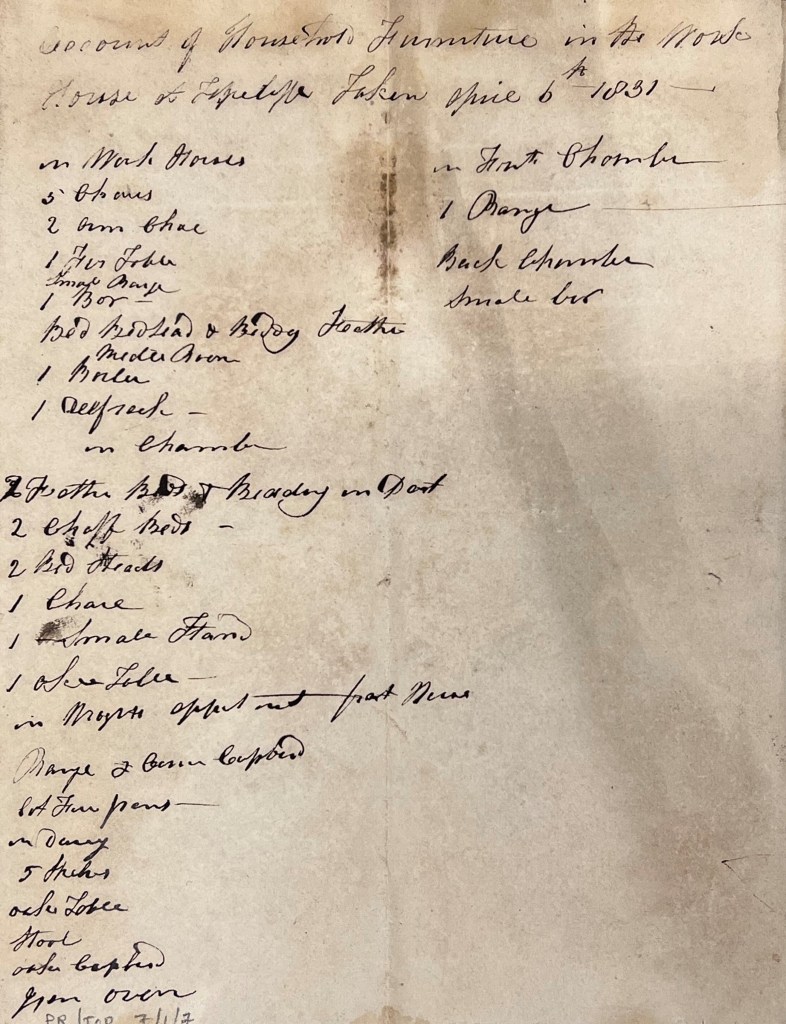 Account of Household Furniture in the Work
House at Topcliffe Taken Aprie 6th 1831
in Work House
5 Chares
2 arm Chae
1 Fir Table
Smale Range
1 Box
Bed Bedstead & Beddg Feather
Medle Room
1 Boiler
1 Delfrack
in Chamber
2 Feather Beds & Bedding in Part
2 Chaff Beds
2 Bed Steads
1 Chare
1 Smale Stand
1 oke Table
in part House
Range & Corner Cupbord
in Darey
5 Shelves
oake Table
Stool
oake Cupbord
Iron oven
in Front Chamber
1 Range
Back Chamber
Smale box
PR/TOP 7/1/7